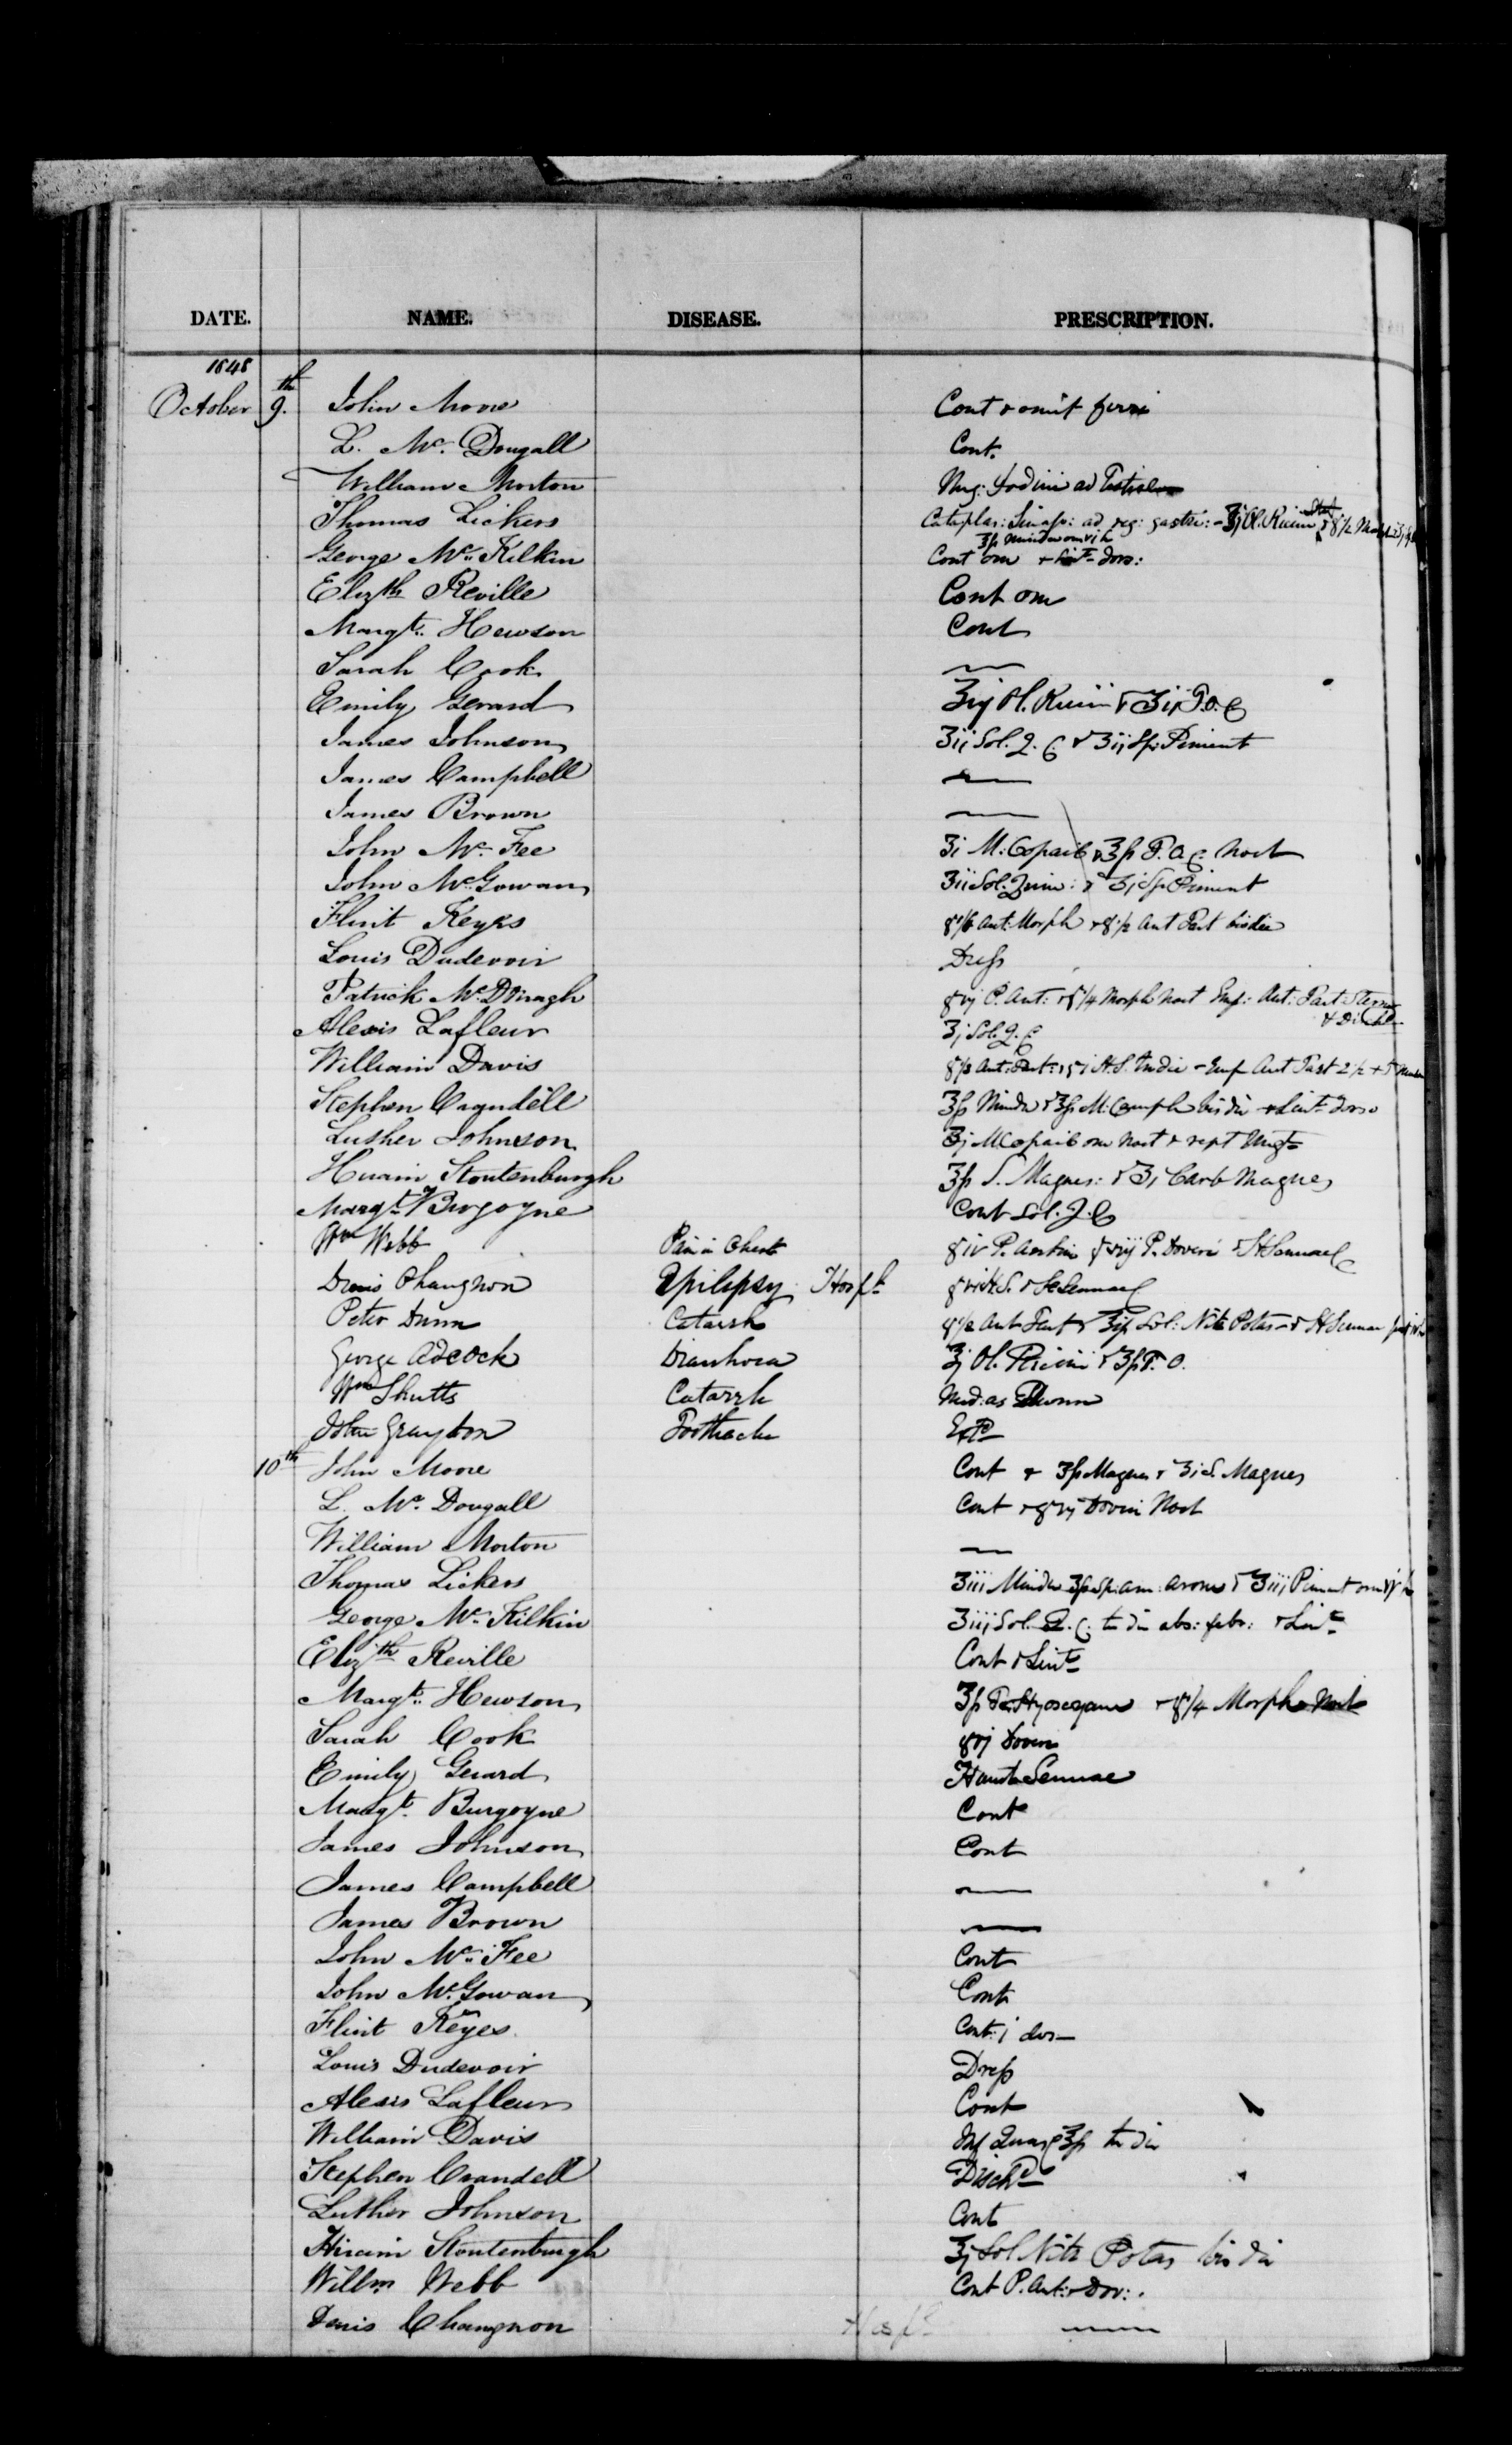 DATE. NAME. DISEASE. PRESCRIPTION.
1848
October 9.th John Moore Cont & omit ferri
L. Mc. Dougall Cont.
William Morton Ung: Iodini ad
Thomas Lickers Cataplas: Sinap: ad reg: gastri: - ʒj Ol. Ricini
ʒß Minder om vi h
George Mc. Kilkin Cont om & Lint dors:
Elizth Reville Cont om
Margt. Hewson Cont
Sarah Cook —
Emily Gerard ʒij Ol. Ricini & ʒij T.O.C
James Johnson ʒij Sol. Q. C & ʒij Sp: Piment
James Campbell —
James Brown —
John Mc. Fee ʒi M: Copaib & ʒß T. O C. Noct
John Mc.Gowan ʒij Sol. Quin: & ʒj Sp Piment
Flint Keyes gr 1/6 Ant: Morph & gr 1/2 Ant Tart bis die
Louis Dudevoir Dress
Patrick Mc.Donagh gr vj P. Ant: & gr 1/4 Morph Noct Emp: Ant: Tart: Sterno
Alexis Lafleur ʒj Sol. Q. C
& Disch
William Davis gr 1/2 Ant: Tart:
Stephen Crandell ʒß Minder & ʒß M. Camph bis die & Lint dorso
Luther Johnson ʒj M. Copaib om Noct & rept Ungt
Hiram Stoutenburgh ʒß S. Magnes: & ʒi Carb Magnes
Margt. Burgoyne Cont Sol. Q. C
Wm Webb Pain in Chest gr iv P. Antim gr vij P. Doveri & H Sennae
Denis Changnon Epilepsy Hospl H.S. & H Sennae
Peter Dunn Catarrh gr 1/2 Ant Tart & ʒiß Sol: Nit Potas - & H Sennae
George Adcock Diarrhoea ʒj Ol. Ricini & ʒß T. O.
Wm Shutts Catarrh Med: as Dunn
John Grayton Toothache Extd
10th John Moore Cont & ʒß Magnes & ʒi S. Magnes
L. Mc. Dougall Cont & gr vj Doveri Noct
William Morton —
Thomas Lickers ʒiii Minder ʒß Sp: am: arom & ʒiij Piment om
George Mc. Kilkin ʒiij Sol. Q. C. ter die abs: febr: & Lint
Elizth Reville Cont & Lint
Margt. Hewson ʒß Tr Hyoscyam & gr 1/4 Morph Noct
Sarah Cook gr vj Doveri
Emily Gerard Haust Sennae
Margt. Burgoyne Cont
James Johnson Cont
James Campbell —
James Brown —
John Mc. Fee Cont
John Mc.Gowan Cont
Flint Keyes Cont: i dos—
Louis Dudevoir Dress
Alexis Lafleur Cont
William Davis Inf Quass ʒß ter die
Stephen Crandell Dischd
Luther Johnson Cont
Hiram Stoutenburgh ʒj Sol Nit Potas bis die
Willm Webb Cont P. Ant: & Dov:.
Denis Changnon Hospl —